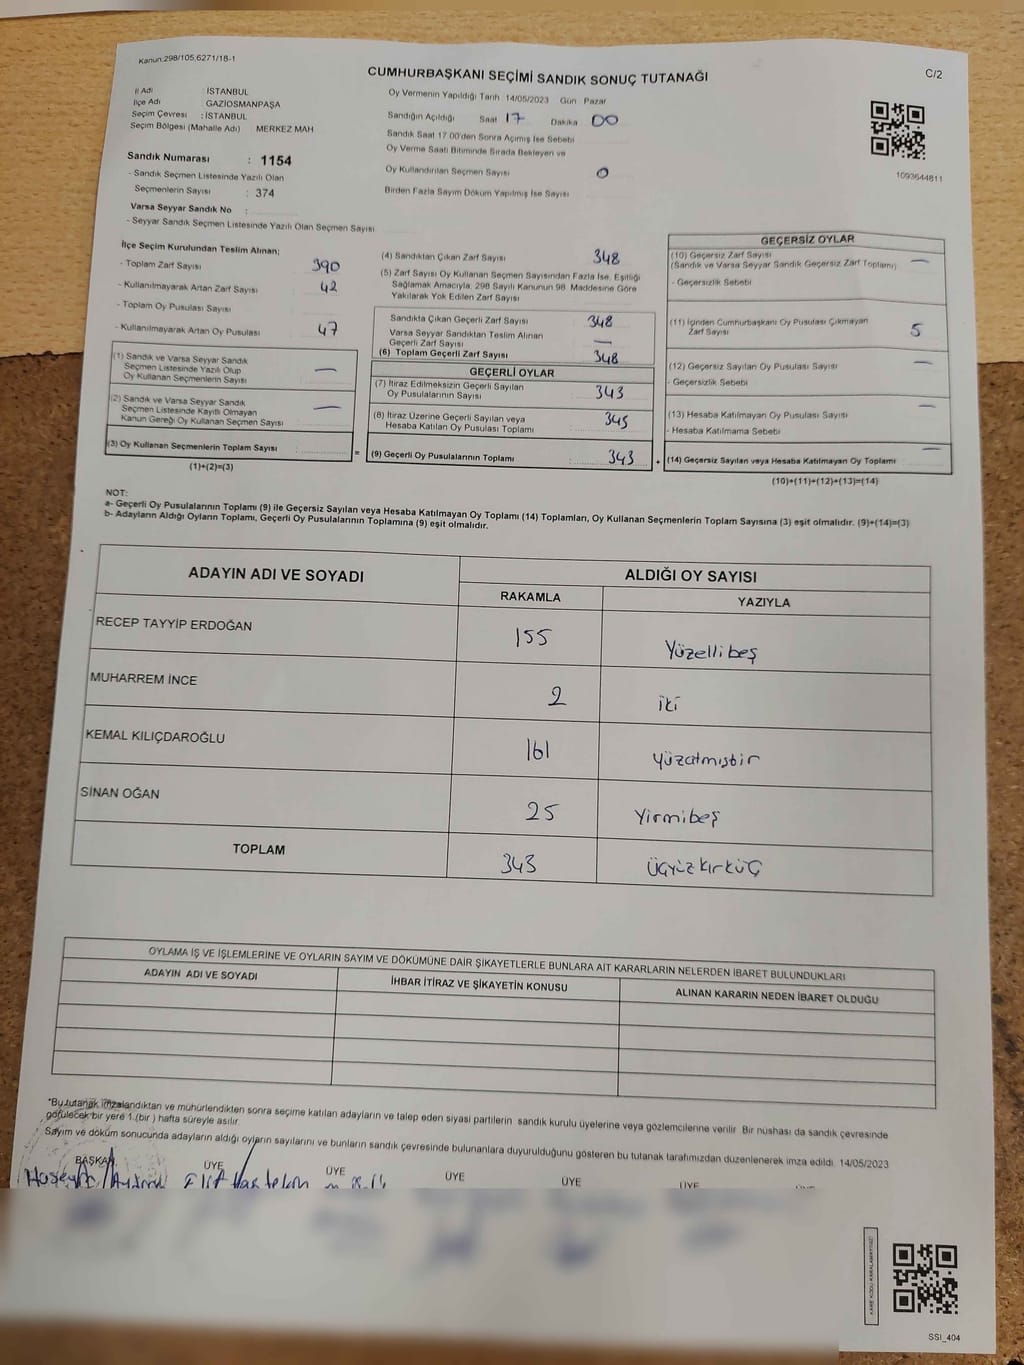 Kanun:298/105,6271/18-1
CUMHURBAŞKANI SEÇİMİ SANDIK SONUÇ TUTANAĞI
C/2
İl Adı : İSTANBUL
İlçe Adı : GAZİOSMANPAŞA
Seçim Çevresi : İSTANBUL
Seçim Bölgesi (Mahalle Adı) MERKEZ MAH
Oy Vermenin Yapıldığı Tarih 14/05/2023 Gün Pazar
Sandığın Açıldığı Saat 17 Dakika 00
Sandık Saat 17.00'den Sonra Açımış İse Sebebi
Oy Verme Saati Bitiminde Sırada Bekleyen ve
Oy Kullandırılan Seçmen Sayısı 0
Birden Fazla Sayım Döküm Yapılmış İse Sayısı
1093644811
Sandık Numarası : 1154
- Sandık Seçmen Listesinde Yazılı Olan
Seçmenlerin Sayısı : 374
Varsa Seyyar Sandık No :
- Seyyar Sandık Seçmen Listesinde Yazılı Olan Seçmen Sayısı
İlçe Seçim Kurulundan Teslim Alınan;
- Toplam Zarf Sayısı : 390
- Kullanılmayarak Artan Zarf Sayısı : 42
- Toplam Oy Pusulası Sayısı :
- Kullanılmayarak Artan Oy Pusulası : 47
(1) Sandık ve Varsa Seyyar Sandık
Seçmen Listesinde Yazılı Olup
Oy Kullanan Seçmenlerin Sayısı : —
(2) Sandık ve Varsa Seyyar Sandık
Seçmen Listesinde Kayıtlı Olmayan
Kanun Gereği Oy Kullanan Seçmen Sayısı : —
(3) Oy Kullanan Seçmenlerin Toplam Sayısı :
(1)+(2)=(3)
(4) Sandıktan Çıkan Zarf Sayısı 348
(5) Zarf Sayısı Oy Kullanan Seçmen Sayısından Fazla İse, Eşitliği
Sağlamak Amacıyla, 298 Sayılı Kanunun 98. Maddesine Göre
Yakılarak Yok Edilen Zarf Sayısı
Sandıkta Çıkan Geçerli Zarf Sayısı : 348
Varsa Seyyar Sandıktan Teslim Alınan
Geçerli Zarf Sayısı : —
(6) Toplam Geçerli Zarf Sayısı : 348
GEÇERLİ OYLAR
(7) İtiraz Edilmeksizin Geçerli Sayılan
Oy Pusulalarının Sayısı : 343
(8) İtiraz Üzerine Geçerli Sayılan veya
Hesaba Katılan Oy Pusulası Toplamı : 345
(9) Geçerli Oy Pusulalarının Toplamı : 343
GEÇERSİZ OYLAR
(10) Geçersiz Zarf Sayısı
(Sandık ve Varsa Seyyar Sandık Geçersiz Zarf Toplamı) —
- Geçersizlik Sebebi
(11) İçinden Cumhurbaşkanı Oy Pusulası Çıkmayan
Zarf Sayısı 5
(12) Geçersiz Sayılan Oy Pusulası Sayısı —
- Geçersizlik Sebebi
(13) Hesaba Katılmayan Oy Pusulası Sayısı —
- Hesaba Katılmama Sebebi
(14) Geçersiz Sayılan veya Hesaba Katılmayan Oy Toplamı —
(10)+(11)+(12)+(13)=(14)
NOT:
a- Geçerli Oy Pusulalarının Toplamı (9) ile Geçersiz Sayılan veya Hesaba Katılmayan Oy Toplamı (14) Toplamları, Oy Kullanan Seçmenlerin Toplam Sayısına (3) eşit olmalıdır. (9)+(14)=(3)
b- Adayların Aldığı Oyların Toplamı, Geçerli Oy Pusulalarının Toplamına (9) eşit olmalıdır.
ADAYIN ADI VE SOYADI ALDIĞI OY SAYISI
RAKAMLA YAZIYLA
RECEP TAYYİP ERDOĞAN 155 Yüzellibeş
MUHARREM İNCE 2 iki
KEMAL KILIÇDAROĞLU 161 yüzatmışbir
SİNAN OĞAN 25 Yirmibeş
TOPLAM 343 Üçyüzkırküç
OYLAMA İŞ VE İŞLEMLERİNE VE OYLARIN SAYIM VE DÖKÜMÜNE DAİR ŞİKAYETLERLE BUNLARA AİT KARARLARIN NELERDEN İBARET BULUNDUKLARI
ADAYIN ADI VE SOYADI İHBAR İTİRAZ VE ŞİKAYETİN KONUSU ALINAN KARARIN NEDEN İBARET OLDUĞU
*Bu tutanak imzalandıktan ve mühürlendikten sonra seçime katılan adayların ve talep eden siyasi partilerin sandık kurulu üyelerine veya gözlemcilerine verilir. Bir nüshası da sandık çevresinde
görülecek bir yere 1.(bir ) hafta süreyle asılır.
Sayım ve döküm sonucunda adayların aldığı oyların sayılarını ve bunların sandık çevresinde bulunanlara duyurulduğunu gösteren bu tutanak tarafımızdan düzenlenerek imza edildi. 14/05/2023
BAŞKAN ÜYE ÜYE ÜYE ÜYE ÜYE
SSI_404